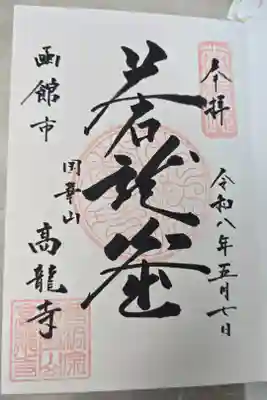 奉拝
令和八年五月七日
蒼龍窟
国華山
函館市 高龍寺